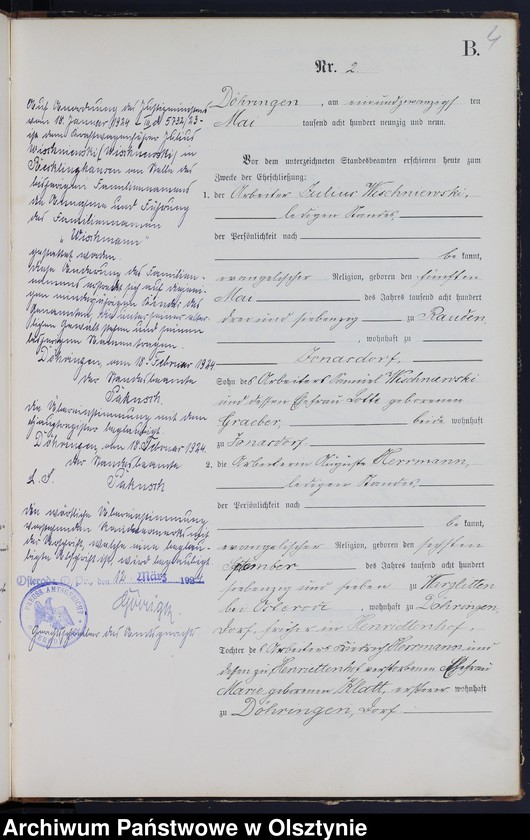 4
B.
Nr. 2
Döhringen, am einundzwanzigsten
Mai tausend acht hundert neunzig und neun.
Vor dem unterzeichneten Standesbeamten erschienen heute zum
Zwecke der Eheschließung:
1. der Arbeiter Julius Wischniewski,
ledigen Standes,
der Persönlichkeit nach
be kannt,
evangelischer Religion, geboren den fünften
Mai des Jahres tausend acht hundert
drei und siebenzig zu Rauden,
, wohnhaft zu
Jonasdorf.
Sohn des Arbeiters Samuel Wischniewski
und dessen Ehefrau Lotte geborenen
Graeber, beide wohnhaft
zu Jonasdorf
2. die Arbeiterin Auguste Herrmann,
ledigen Standes,
der Persönlichkeit nach
be kannt,
evangelischer Religion, geboren den sechsten
September des Jahres tausend acht hundert
siebenzig und sieben zu
bei Osterode, wohnhaft zu Döhringen,
Dorf, früher in Henriettenhof,
Tochter des Arbeiters Herrmann und
dessen zu Henriettenhof verstorbenen Ehefrau
Marie geborenen Klatt, ersterer wohnhaft
zu Döhringen, Dorf
Auf Anordnung des Justizministers
vom 18. Januar 1924
ist dem Julius
Wischniewski (Wischnewski) in
Recklinghausen an Stelle des
bisherigen Familiennamens
die Annahme und Führung
des Familiennamen
"Wischmann"
gestattet worden.
Diese Änderung des Familien-
namens erstreckt sich auf diejeni-
gen minderjährigen Kinder des
Genannten, die unter seiner elter-
lichen Gewalt stehen und seinen
bisherigen Namen tragen.
Döhringen, am 18. Februar 1924
Der Standesbeamte
Die Übereinstimmung mit dem
Hauptregister beglaubigt.
Döhringen, am 18. Februar 1924.
Der Standesbeamte
L. S.
Die wörtliche Übereinstimmung
vorstehenden Randvermerks mit
der Abschrift, welche eine beglau-
bigte Abschrift ist, wird beglaubigt.
Osterode O. Pr., den 12. März 1924
Gerichtsschreiber des Amtsgerichts
Archiwum Państwowe w Olsztynie